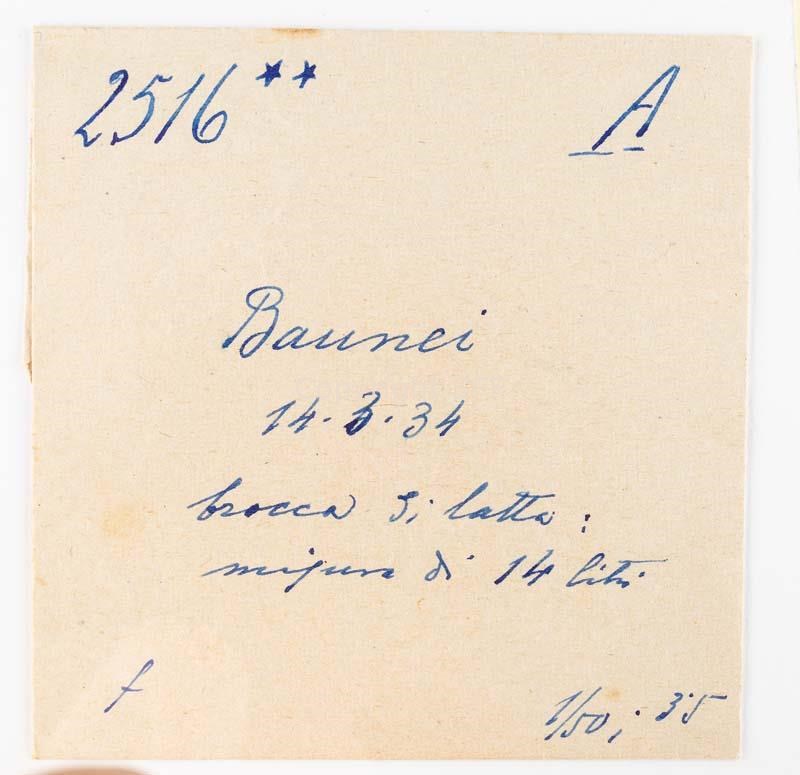 2516** A
Baunei
14.3.34
brocca di latta:
misura di 14 litri
f
1/50; 35